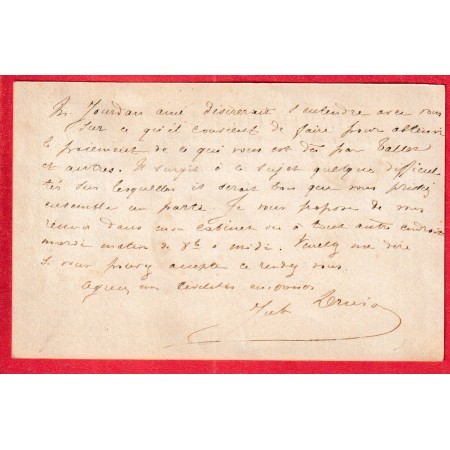 Mr Jourdan ainé désirerait s'entendre avec vous
Sur ce qu'il convient de faire pour obtenir
le paiement de ce qui vous est dû par
et autres. Il surgit à ce sujet quelques difficul
tés sur lesquelles il serait bon que vous
ensemble un parti. Je vous propose de vous
réunir dans mon cabinet ou à tout autre endroit
mardi matin de 8h à midi. Veuillez me dire
Si vous pouvez accepter ce rendez vous.
Agréez mes civilités